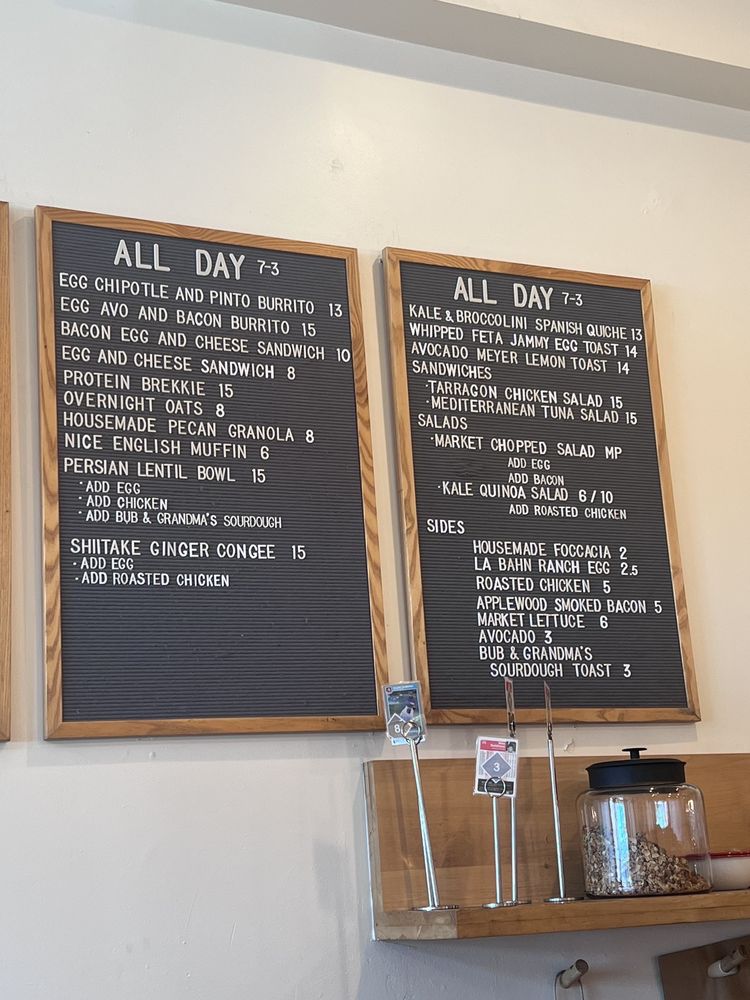 ALL DAY 7-3
EGG CHIPOTLE AND PINTO BURRITO 13
EGG AVO AND BACON BURRITO 15
BACON EGG AND CHEESE SANDWICH 10
EGG AND CHEESE SANDWICH 8
PROTEIN BREKKIE 15
OVERNIGHT OATS 8
HOUSEMADE PECAN GRANOLA 8
NICE ENGLISH MUFFIN 6
PERSIAN LENTIL BOWL 15
·ADD EGG
·ADD CHICKEN
·ADD BUB & GRANDMA'S SOURDOUGH
SHIITAKE GINGER CONGEE 15
·ADD EGG
·ADD ROASTED CHICKEN
ALL DAY 7-3
KALE & BROCCOLINI SPANISH QUICHE 13
WHIPPED FETA JAMMY EGG TOAST 14
AVOCADO MEYER LEMON TOAST 14
SANDWICHES
·TARRAGON CHICKEN SALAD 15
·MEDITERRANEAN TUNA SALAD 15
SALADS
·MARKET CHOPPED SALAD MP
ADD EGG
ADD BACON
·KALE QUINOA SALAD 6/10
ADD ROASTED CHICKEN
SIDES
HOUSEMADE FOCCACIA 2
LA BAHN RANCH EGG 2.5
ROASTED CHICKEN 5
APPLEWOOD SMOKED BACON 5
MARKET LETTUCE 6
AVOCADO 3
BUB & GRANDMA'S
SOURDOUGH TOAST 3
8
3